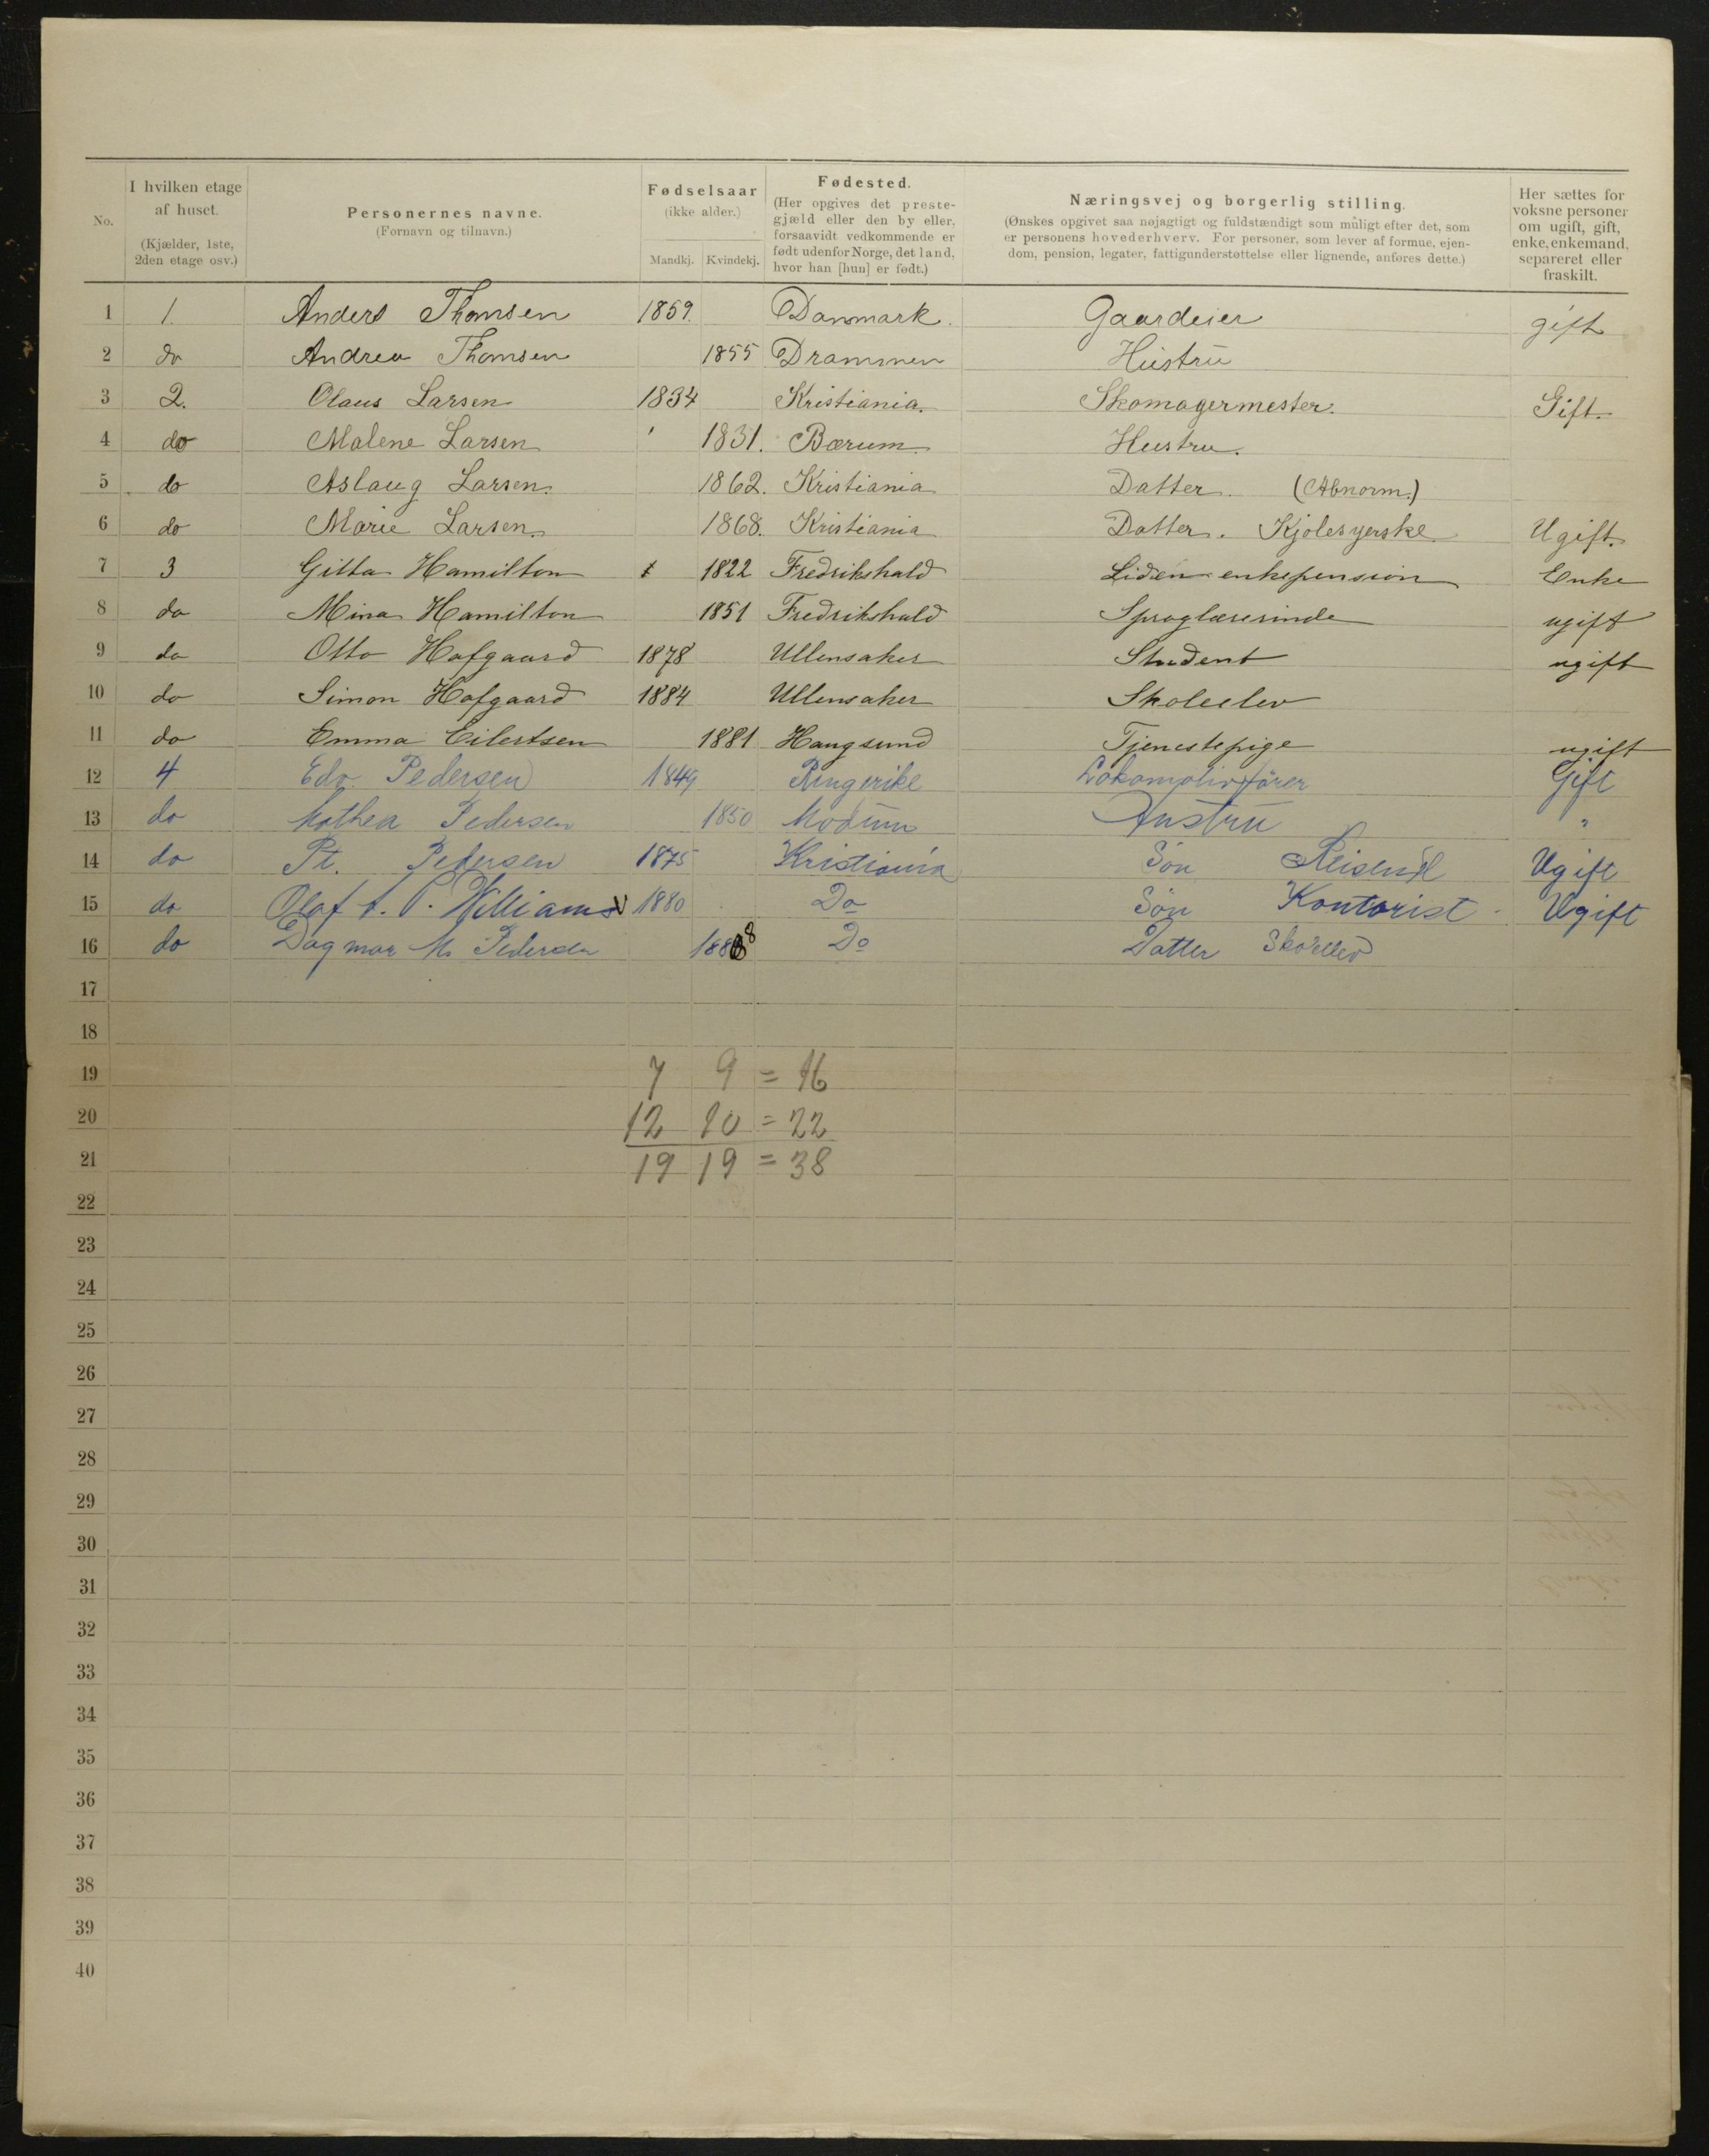 No.
I hvilken etage af huset. (Kjælder, 1ste, 2den etage osv.)
Personernes navne. (Fornavn og tilnavn.)
Fødselsaar (ikke alder.) Mandkj. Kvindekj.
Fødested. (Her opgives det prestegjæld eller den by eller, forsaavidt vedkommende er født udenfor Norge, det land, hvor han [hun] er født.)
Næringsvej og borgerlig stilling. (Ønskes opgivet saa nøjagtigt og fuldstændigt som muligt efter det, som er personens hovederhverv. For personer, som lever af formue, ejendom, pension, legater, fattigunderstøttelse eller lignende, anføres dette.)
Her sættes for voksne personer om ugift, gift, enke, enkemand, separeret eller fraskilt.
1 1. Anders Thomsen 1859. Danmark. Gaardeier gift
2 do Andrea Thomsen 1855 Drammen Hustru
3 2. Olaus Larsen 1834 Kristiania. Skomagermester. Gift.
4 do Malene Larsen 1831. Bærum. Hustru.
5 do Aslaug Larsen. 1862. Kristiania Datter. (Abnorm.)
6 do Marie Larsen. 1868. Kristiania Datter. Kjolesyerske Ugift.
7 3 Gitta Hamilton 1822 Fredrikshald Liden enkepension Enke
8 do Mina Hamilton 1851 Fredrikshald Sproglærerinde ugift
9 do Otto Hofgaard 1878 Ullensaker Student ugift
10 do Simon Hofgaard 1884 Ullensaker Skoleelev
11 do Emma Eilertsen 1881 Haugsund Tjenestepige ugift
12 4 Edv. Pedersen 1849 Ringerike Lokomotivfører Gift
13 do Mathea Pedersen 1850 Modum Hustru "
14 do Pt. Pedersen 1875 Kristiania Søn Reisende Ugift
15 do Olaf A. P. Williams 1880 Do Søn Kontorist Ugift
16 do Dagmar M. Pedersen 1888 Do Datter Skoleelev
17
18
19 7 9 = 16
20 12 10 = 22
21 19 19 = 38
22
23
24
25
26
27
28
29
30
31
32
33
34
35
36
37
38
39
40